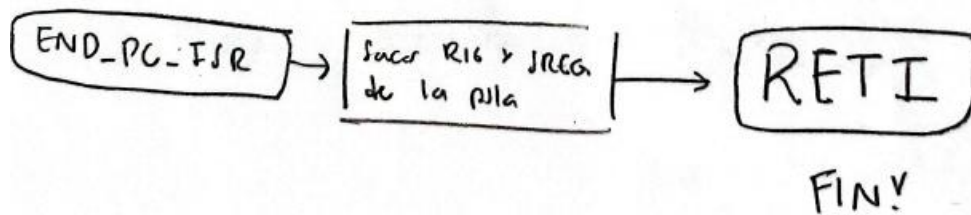 END_PC_ISR
Sacar R16 y SREG
de la pila
RETI
FIN!